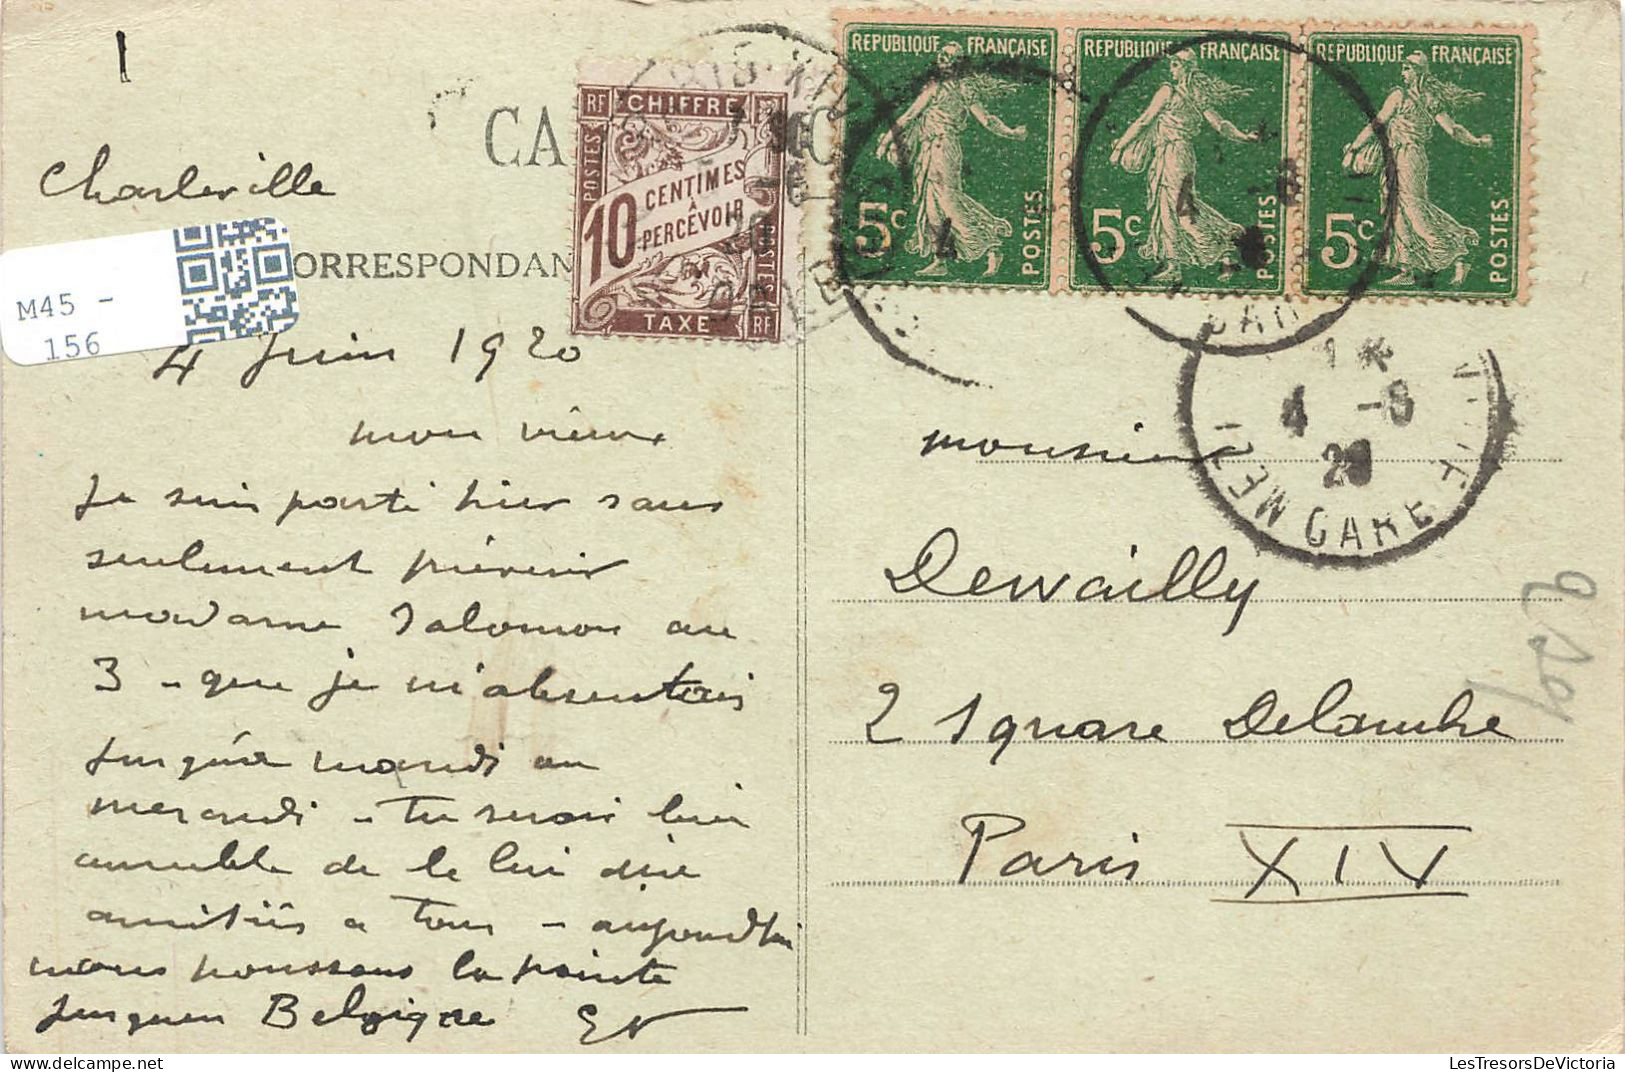 CA
Charleville
M45 -
156
ORRESPONDAN
4 Juin 1920
mon vieux
Je suis parti hier sans
seulement prévenir
madame Salomon au
3 - que je m'absentais
jusqu'à mardi ou
mercredi - tu serais bien
aimable de le lui dire
amitiés à tous - aujourd'hui
nous poussons la pointe
jusquen Belgique
RF CHIFFRE
POSTES
10 CENTIMES
A
PERCEVOIR
POSTES
TAXE RF
REPUBLIQUE FRANÇAISE
5c
POSTES
REPUBLIQUE FRANÇAISE
5c
POSTES
REPUBLIQUE FRANÇAISE
5c
POSTES
4 -6
GAR
4 -6
20
GARE
monsieur
Dewailly
2 Square Delambre
Paris XIV
LesTresorsDeVictoria